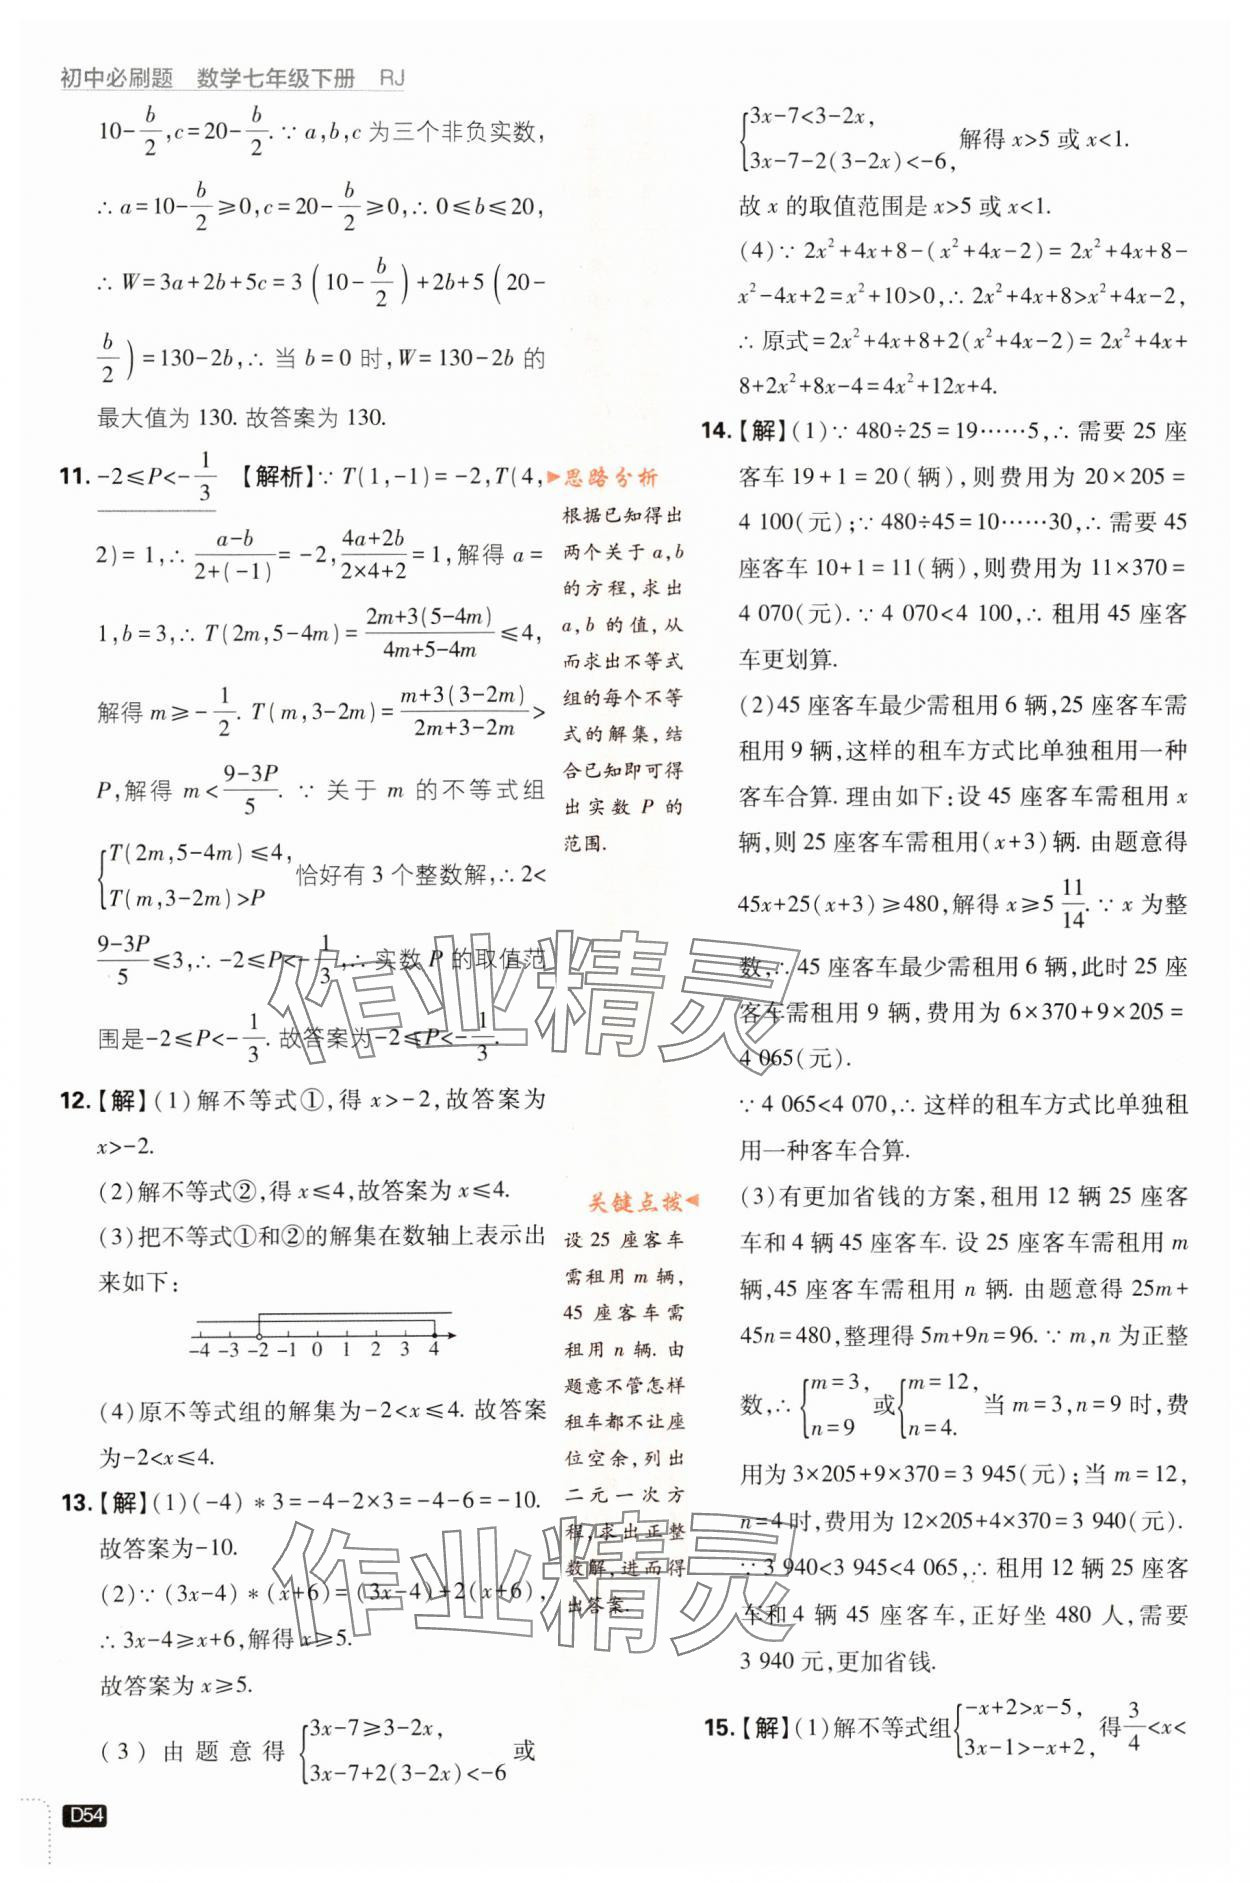 初中必刷题 数学七年级下册 RJ
10-b/2,c=20-b/2.∵a,b,c为三个非负实数,
∴a=10-b/2≥0,c=20-b/2≥0,∴0≤b≤20,
∴W=3a+2b+5c=3(10-b/2)+2b+5(20-
b/2)=130-2b,∴当b=0时,W=130-2b的
最大值为130.故答案为130.
11.-2≤P<-1/3 【解析】∵T(1,-1)=-2,T(4,
2)=1,∴(a-b)/(2+(-1))=-2,(4a+2b)/(2×4+2)=1,解得a=
1,b=3,∴T(2m,5-4m)=(2m+3(5-4m))/(4m+5-4m)≤4,
解得m≥-1/2.T(m,3-2m)=(m+3(3-2m))/(2m+3-2m)>
P,解得m<(9-3P)/5.∵关于m的不等式组
{T(2m,5-4m)≤4,
T(m,3-2m)>P 恰好有3个整数解,∴2<
(9-3P)/5≤3,∴-2≤P<-1/3,∴实数P的取值范
围是-2≤P<-1/3.故答案为-2≤P<-1/3.
12.【解】(1)解不等式①,得x>-2,故答案为
x>-2.
(2)解不等式②,得x≤4,故答案为x≤4.
(3)把不等式①和②的解集在数轴上表示出
来如下:
-4 -3 -2 -1 0 1 2 3 4
(4)原不等式组的解集为-2<x≤4.故答案
为-2<x≤4.
13.【解】(1)(-4)*3=-4-2×3=-4-6=-10.
故答案为-10.
(2)∵(3x-4)*(x+6)=(3x-4)+2(x+6),
∴3x-4≥x+6,解得x≥5.
故答案为x≥5.
(3)由题意得{3x-7≥3-2x,
3x-7+2(3-2x)<-6 或
思路分析
根据已知得出
两个关于a,b
的方程,求出
a,b的值,从
而求出不等式
组的每个不等
式的解集,结
合已知即可得
出实数P的
范围.
关键点拨
设25座客车
需租用m辆,
45座客车需
租用n辆.由
题意不管怎样
租车都不让座
位空余,列出
二元一次方
程,求出正整
数解,进而得
出答案.
{3x-7<3-2x,
3x-7-2(3-2x)<-6, 解得x>5或x<1.
故x的取值范围是x>5或x<1.
(4)∵2x²+4x+8-(x²+4x-2)=2x²+4x+8-
x²-4x+2=x²+10>0,∴2x²+4x+8>x²+4x-2,
∴原式=2x²+4x+8+2(x²+4x-2)=2x²+4x+
8+2x²+8x-4=4x²+12x+4.
14.【解】(1)∵480÷25=19……5,∴需要25座
客车19+1=20(辆),则费用为20×205=
4 100(元);∵480÷45=10……30,∴需要45
座客车10+1=11(辆),则费用为11×370=
4 070(元).∵4 070<4 100,∴租用45座客
车更划算.
(2)45座客车最少需租用6辆,25座客车需
租用9辆,这样的租车方式比单独租用一种
客车合算.理由如下:设45座客车需租用x
辆,则25座客车需租用(x+3)辆.由题意得
45x+25(x+3)≥480,解得x≥5 11/14.∵x为整
数,∴45座客车最少需租用6辆,此时25座
客车需租用9辆,费用为6×370+9×205=
4 065(元).
∵4 065<4 070,∴这样的租车方式比单独租
用一种客车合算.
(3)有更加省钱的方案,租用12辆25座客
车和4辆45座客车.设25座客车需租用m
辆,45座客车需租用n辆.由题意得25m+
45n=480,整理得5m+9n=96.∵m,n为正整
数,∴{m=3,
n=9 或{m=12,
n=4. 当m=3,n=9时,费
用为3×205+9×370=3 945(元);当m=12,
n=4时,费用为12×205+4×370=3 940(元).
∵3 940<3 945<4 065,∴租用12辆25座客
车和4辆45座客车,正好坐480人,需要
3 940元,更加省钱.
15.【解】(1)解不等式组{-x+2>x-5,
3x-1>-x+2, 得3/4<x<
D54
作业精灵
作业精灵